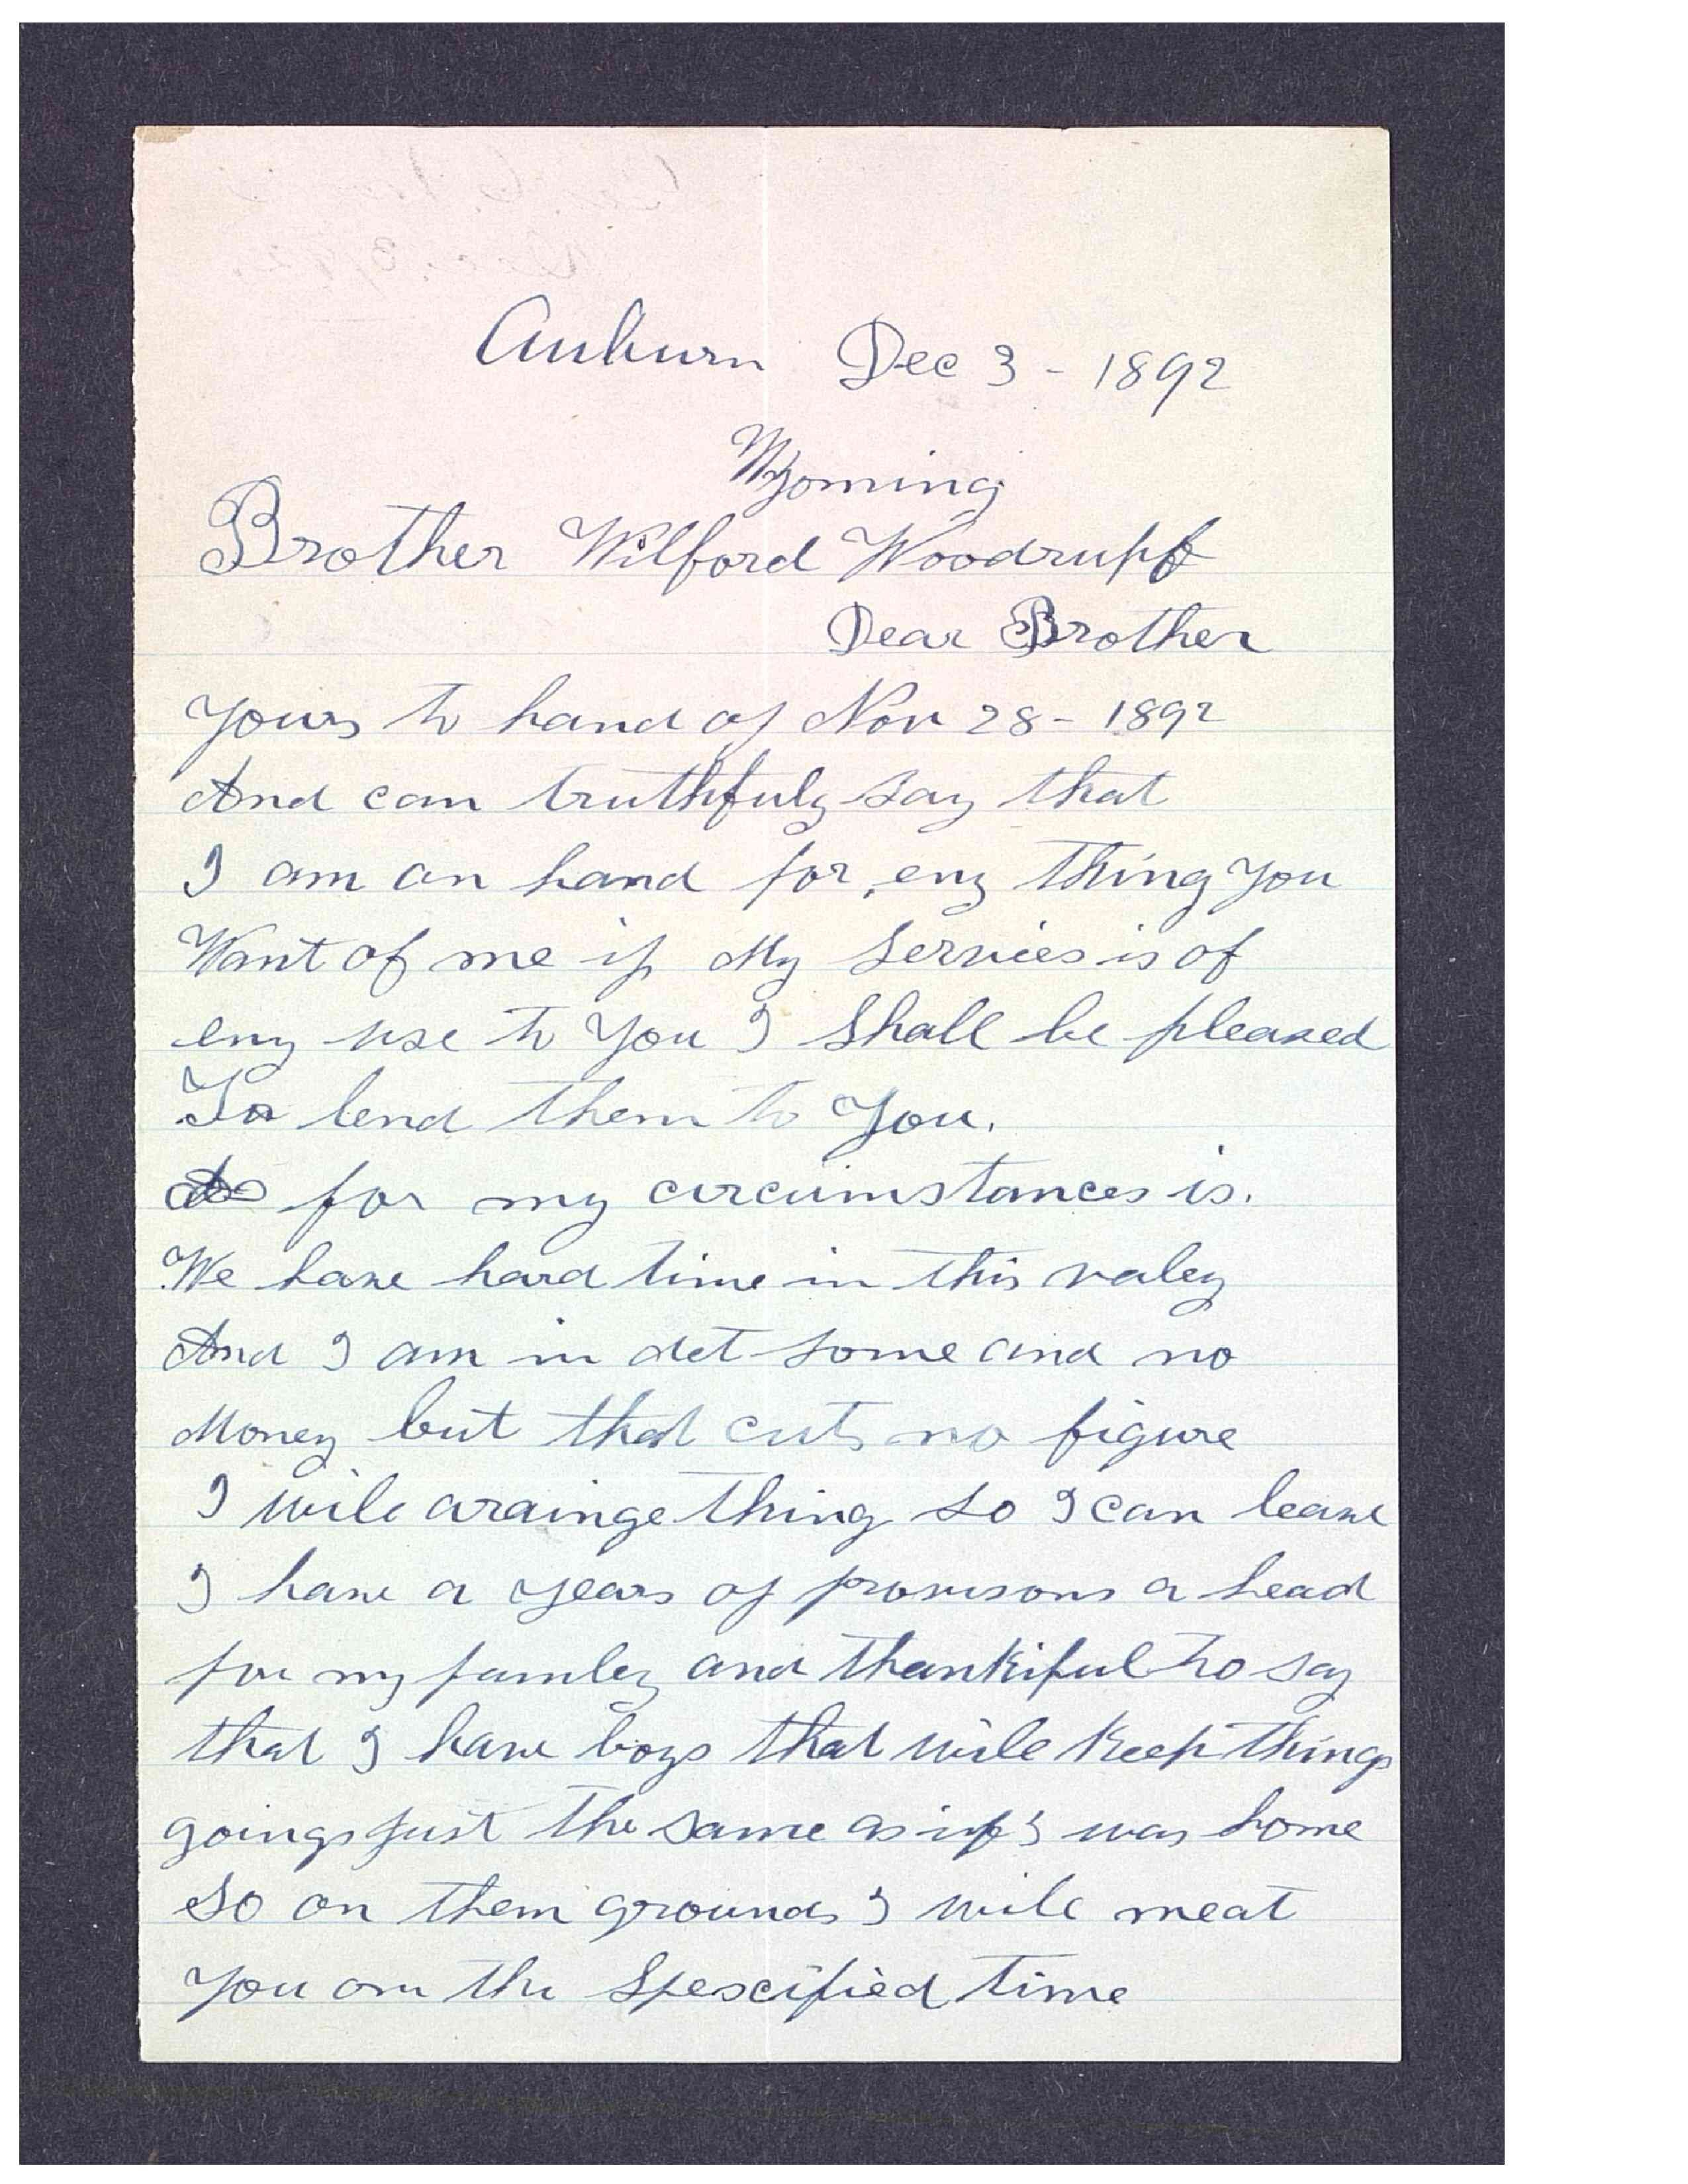 Auburn Dec 3 - 1892
Wyoming
Brother Wilford Woodruff
Dear Brother
Yours to hand of Nov 28 - 1892
And can truthfuly say that
I am on hand for eny thing you
Want of me if My Services is of
eny use to You I Shall be pleased
To lend them to You.
As for my circumstances is.
We have hard time in this valey
And I am in det some and no
Money but that cuts no figure
I wile arainge thing so I can leave
I have a years of provisons a head
for my famley and thankiful to say
that I have boys that wile Keep things
goings just the same as if I was home
So on them grounds I wile meat
You on the Spescified time